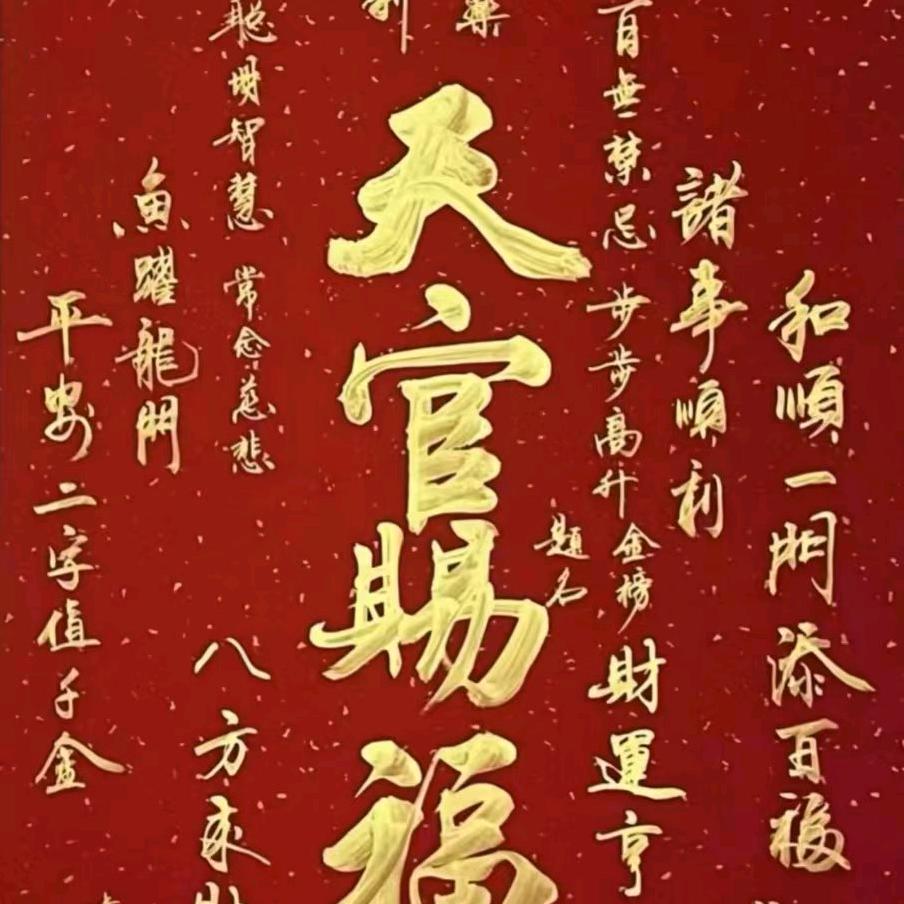 和順一門添百福
諸事順利
百無禁忌
步步高升
金榜
題名
財運亨
天官賜福
聪明智慧
常念慈悲
八方來財
魚躍龍門
平安二字值千金